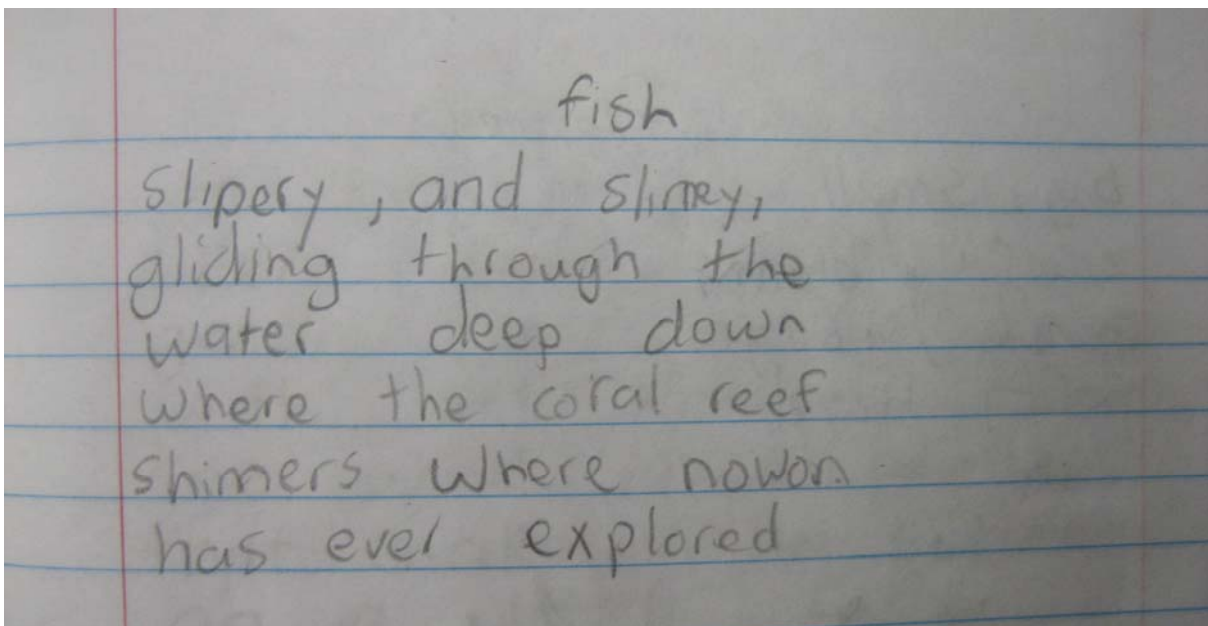 fish
slipery, and slimey,
gliding through the
water deep down
where the coral reef
shimers where nowon
has ever explored